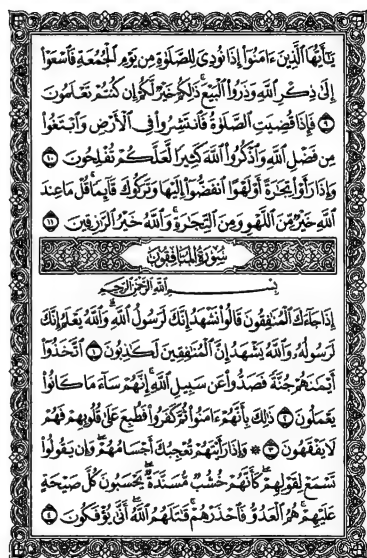 يَٰٓأَيُّهَا ٱلَّذِينَ ءَامَنُوٓا۟ إِذَا نُودِىَ لِلصَّلَوٰةِ مِن يَوْمِ ٱلْجُمُعَةِ فَٱسْعَوْا۟
إِلَىٰ ذِكْرِ ٱللَّهِ وَذَرُوا۟ ٱلْبَيْعَ ۚ ذَٰلِكُمْ خَيْرٌ لَّكُمْ إِن كُنتُمْ تَعْلَمُونَ
۹ فَإِذَا قُضِيَتِ ٱلصَّلَوٰةُ فَٱنتَشِرُوا۟ فِى ٱلْأَرْضِ وَٱبْتَغُوا۟
مِن فَضْلِ ٱللَّهِ وَٱذْكُرُوا۟ ٱللَّهَ كَثِيرًا لَّعَلَّكُمْ تُفْلِحُونَ ١٠
وَإِذَا رَأَوْا۟ تِجَٰرَةً أَوْ لَهْوًا ٱنفَضُّوٓا۟ إِلَيْهَا وَتَرَكُوكَ قَآئِمًا ۚ قُلْ مَا عِندَ
ٱللَّهِ خَيْرٌ مِّنَ ٱللَّهْوِ وَمِنَ ٱلتِّجَٰرَةِ ۚ وَٱللَّهُ خَيْرُ ٱلرَّٰزِقِينَ ١١
سُورَةُ المُنَافِقُونَ
بِسْمِ ٱللَّهِ ٱلرَّحْمَٰنِ ٱلرَّحِيمِ
إِذَا جَآءَكَ ٱلْمُنَٰفِقُونَ قَالُوا۟ نَشْهَدُ إِنَّكَ لَرَسُولُ ٱللَّهِ ۗ وَٱللَّهُ يَعْلَمُ إِنَّكَ
لَرَسُولُهُۥ وَٱللَّهُ يَشْهَدُ إِنَّ ٱلْمُنَٰفِقِينَ لَكَٰذِبُونَ ١ ٱتَّخَذُوٓا۟
أَيْمَٰنَهُمْ جُنَّةً فَصَدُّوا۟ عَن سَبِيلِ ٱللَّهِ ۚ إِنَّهُمْ سَآءَ مَا كَانُوا۟
يَعْمَلُونَ ٢ ذَٰلِكَ بِأَنَّهُمْ ءَامَنُوا۟ ثُمَّ كَفَرُوا۟ فَطُبِعَ عَلَىٰ قُلُوبِهِمْ فَهُمْ
لَا يَفْقَهُونَ ٣ ۞ وَإِذَا رَأَيْتَهُمْ تُعْجِبُكَ أَجْسَامُهُمْ ۖ وَإِن يَقُولُوا۟
تَسْمَعْ لِقَوْلِهِمْ ۖ كَأَنَّهُمْ خُشُبٌ مُّسَنَّدَةٌ ۖ يَحْسَبُونَ كُلَّ صَيْحَةٍ
عَلَيْهِمْ ۚ هُمُ ٱلْعَدُوُّ فَٱحْذَرْهُمْ ۚ قَٰتَلَهُمُ ٱللَّهُ ۖ أَنَّىٰ يُؤْفَكُونَ ٤